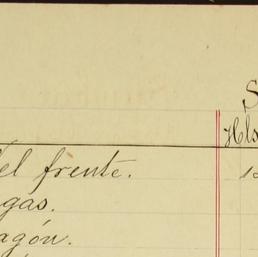 S
Hls
el frente.
gas.
agón.